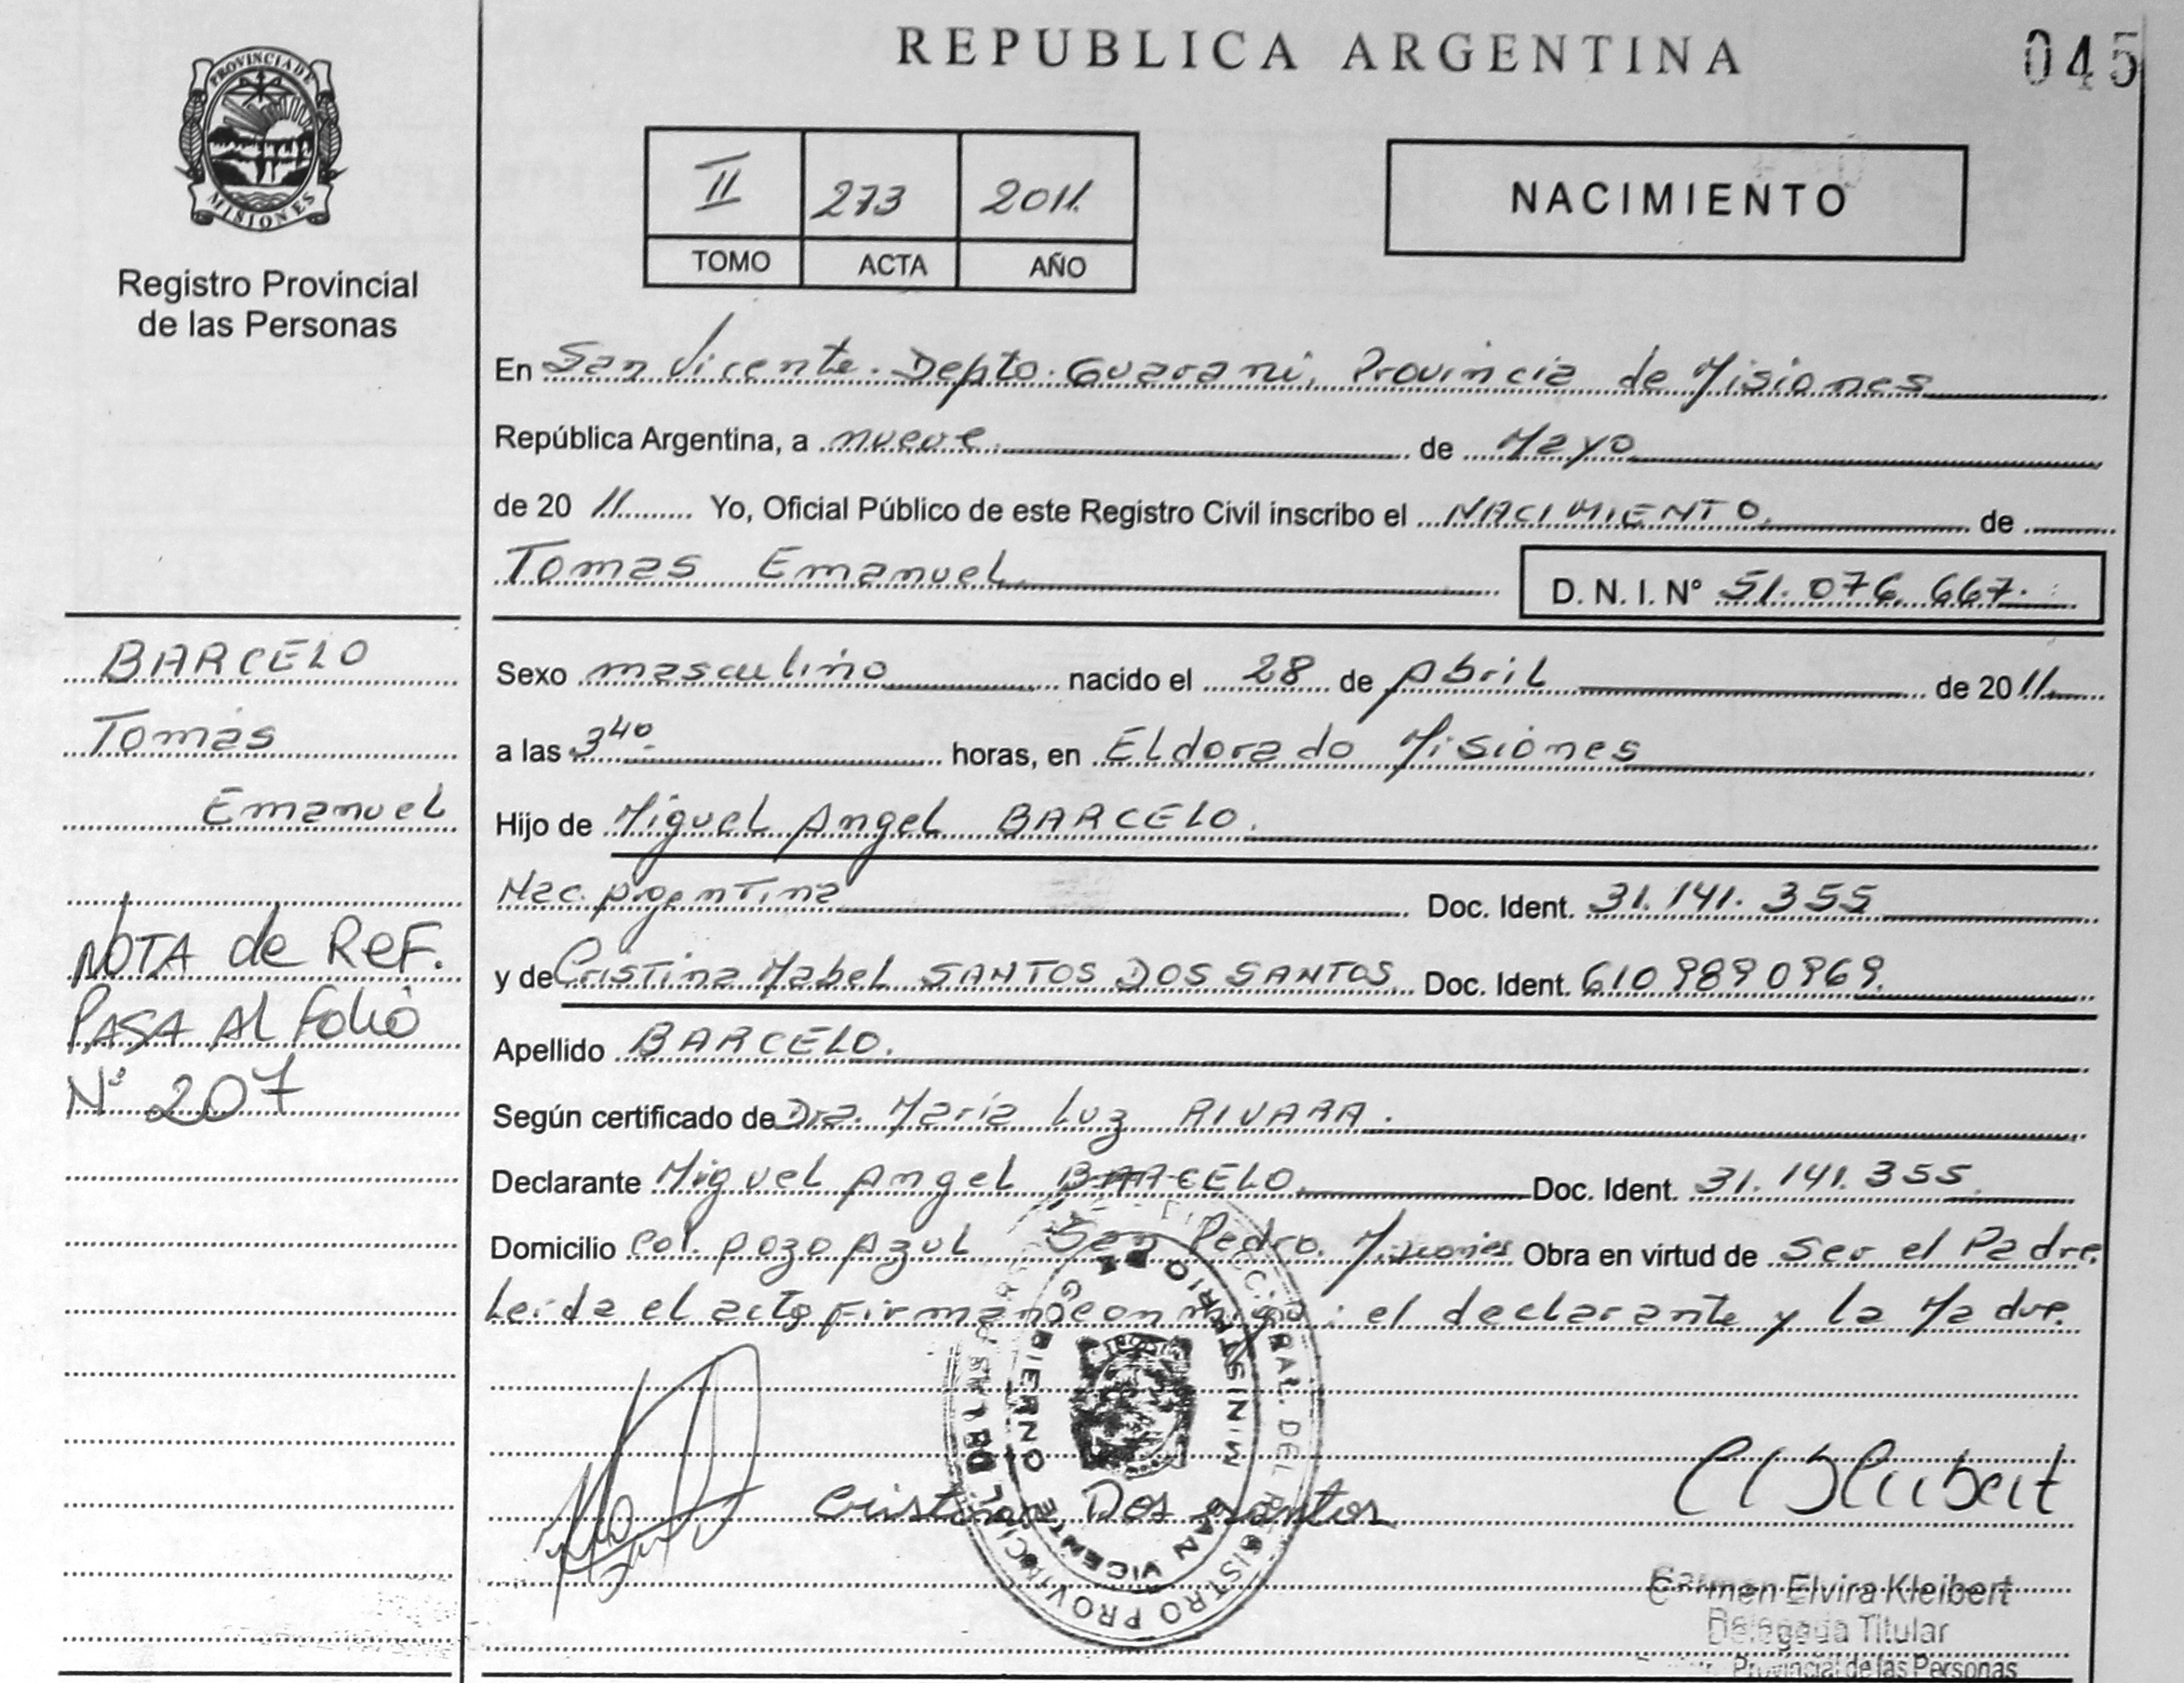 REPUBLICA ARGENTINA
045
PROVINCIA DE
MISIONES
Registro Provincial
de las Personas
II 273 2011.
TOMO ACTA AÑO
NACIMIENTO
En San Vicente. Depto. Guarani, Provincia de Misiones
República Argentina, a nueve de Mayo
de 20 11 Yo, Oficial Público de este Registro Civil inscribo el NACIMIENTO. de
Tomas Emanuel
D. N. I. Nº 51.076.667.
BARCELO
Tomás
Emanuel
NOTA de ReF.
PASA Al Folio
Nº 207
Sexo masculino nacido el 28 de Abril de 20 11
a las 3 40. horas, en Eldorado Misiones
Hijo de Miguel Angel BARCELO.
Nac. Argentina Doc. Ident. 31.141.355
y de Cristina Mabel SANTOS DOS SANTOS Doc. Ident. 6109890969.
Apellido BARCELO.
Según certificado de Dra. María Luz RIVARA.
Declarante Miguel Angel BARCELO. Doc. Ident. 31.141.355
Domicilio Col. Pozo Azul San Pedro. Misiones Obra en virtud de Ser el Padre.
Leída el acta firman conmigo: el declarante y la Madre.
Cristina Dos Santos
MINISTERIO GOBIERNO
SAN VICENTE
Carmen Elvira Kleibert
Delegada Titular
Provincial de las Personas